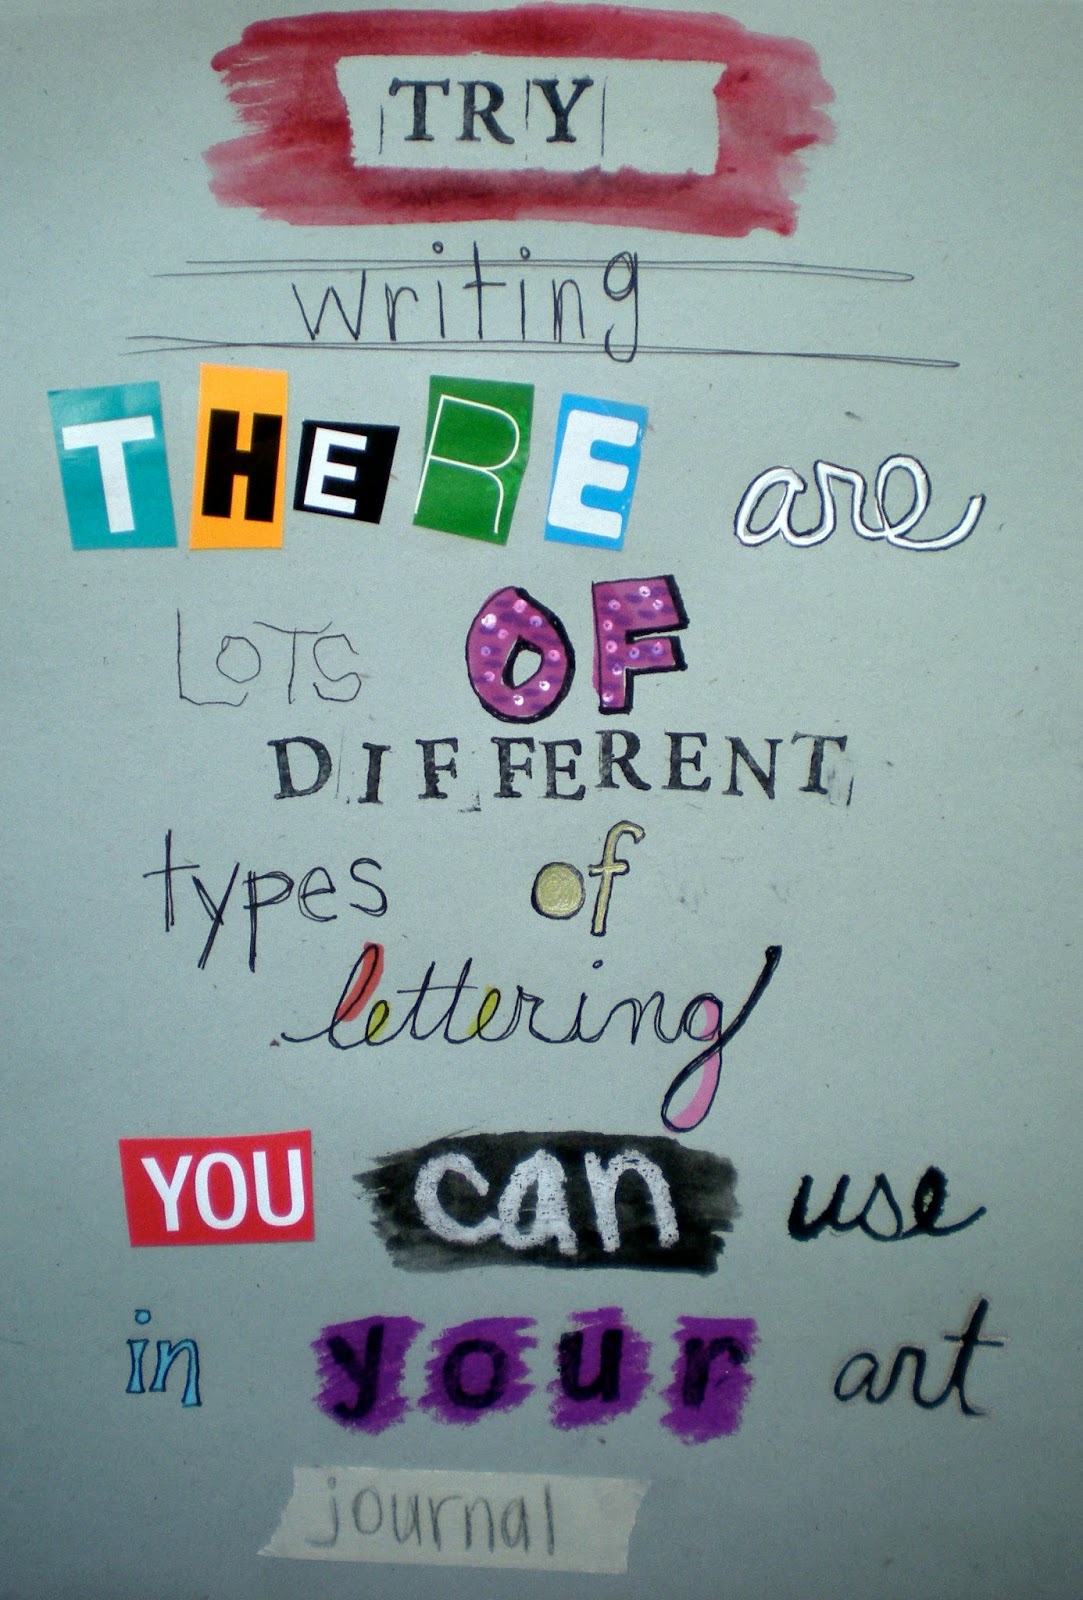 TRY
writing
THERE are
LOTS OF
DIFFERENT
types of
lettering
YOU can use
in your art
journal